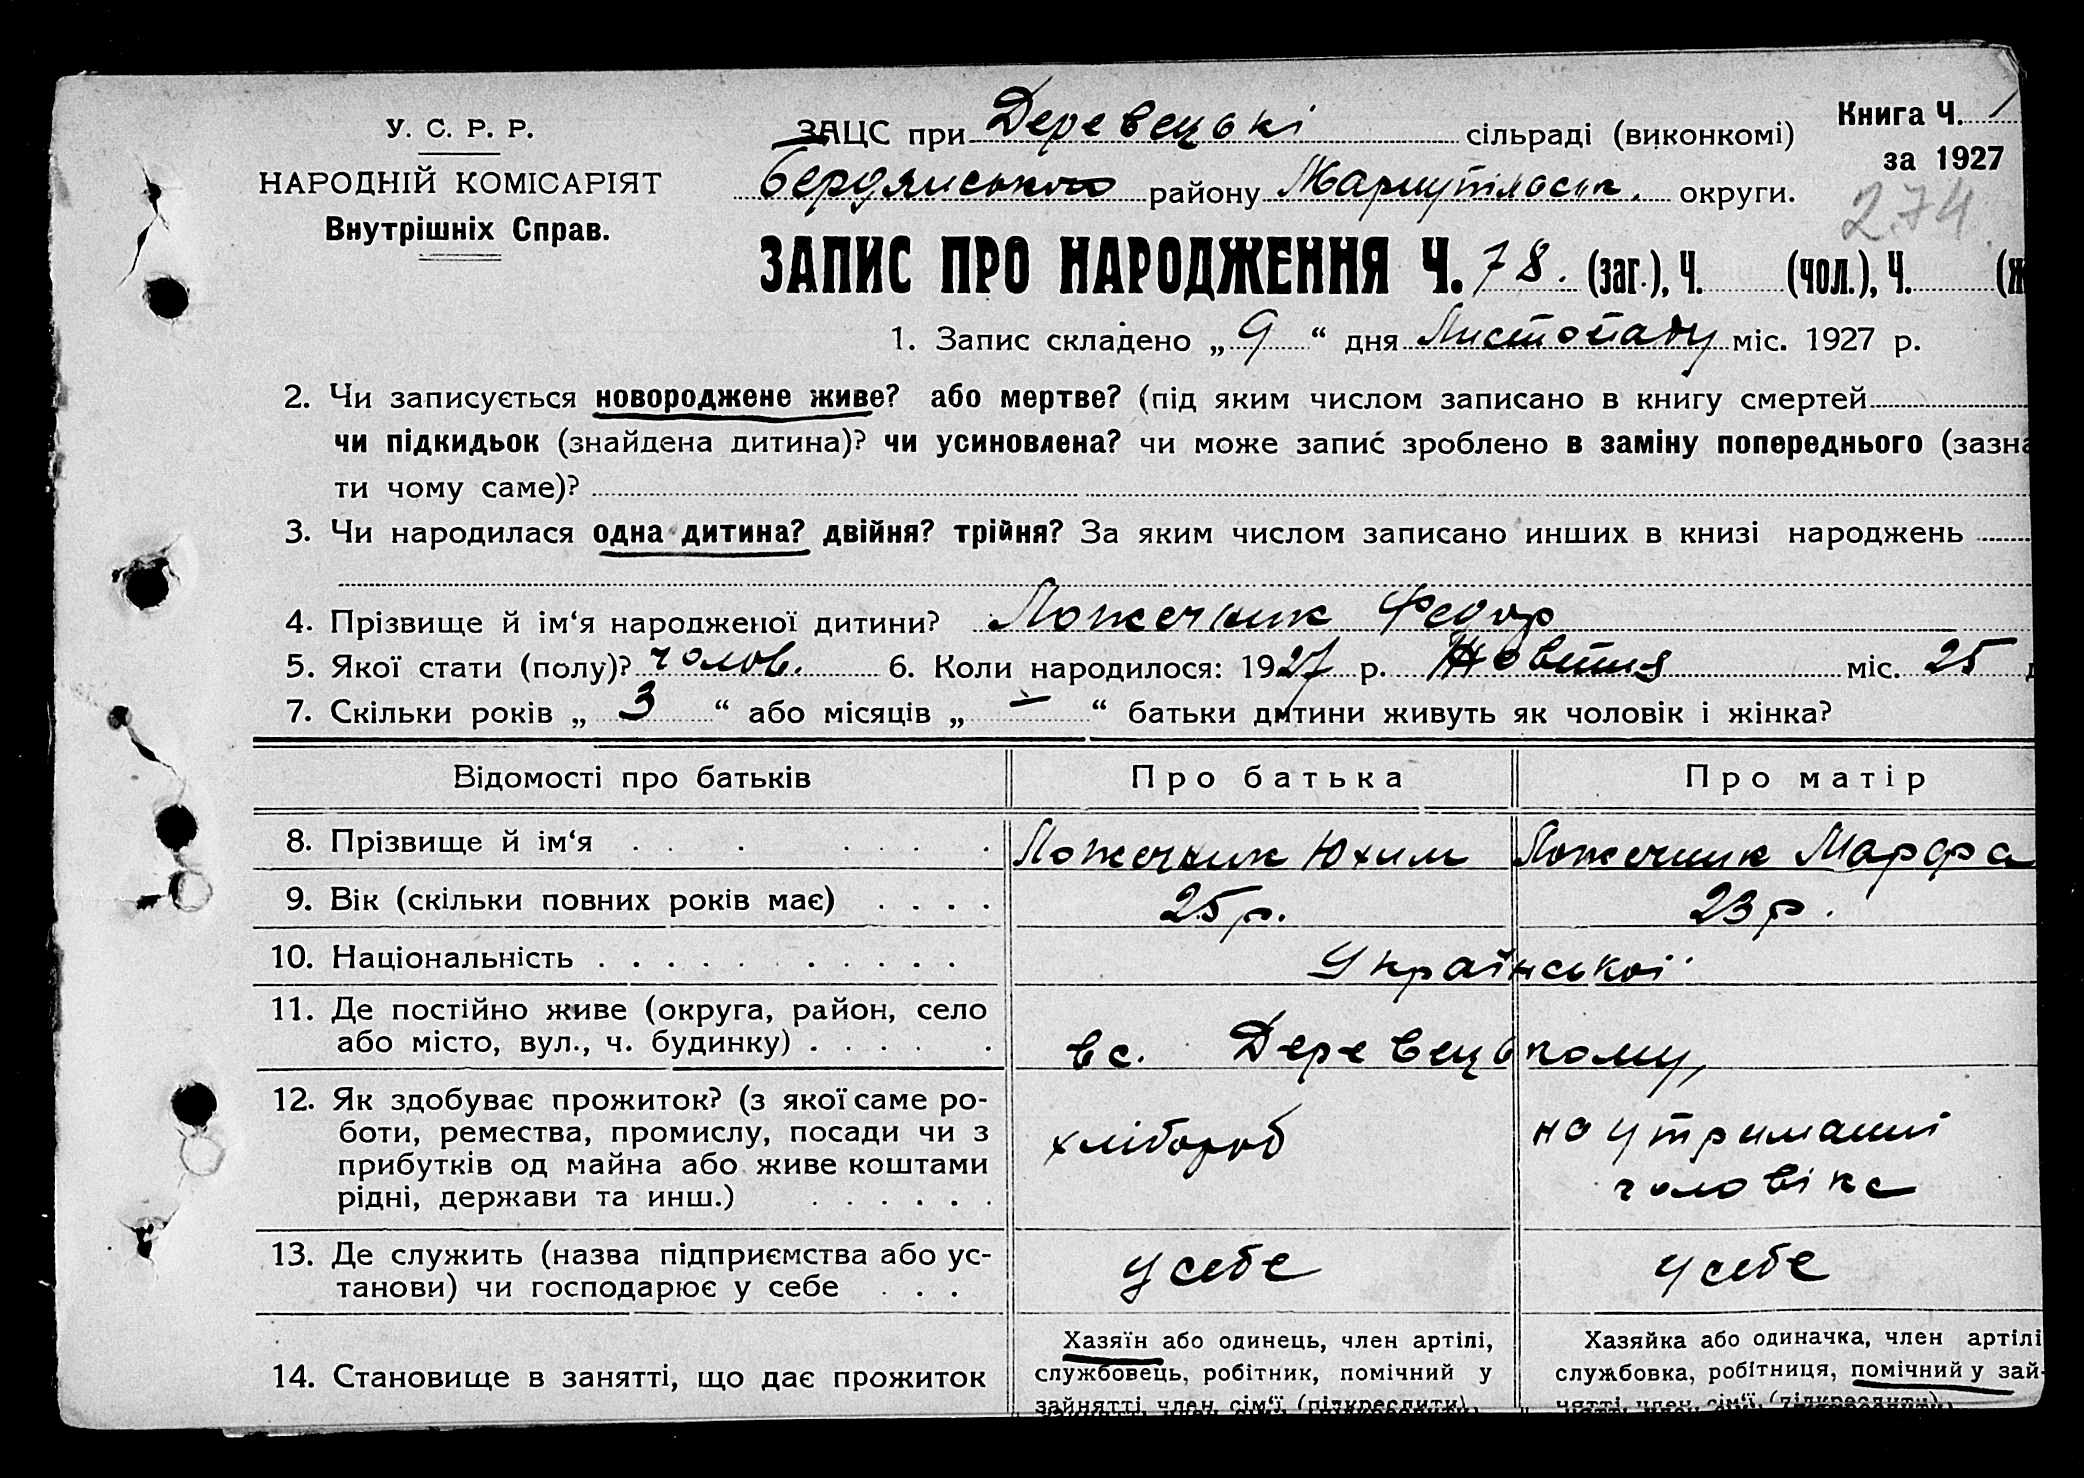 У. С. Р. Р.
НАРОДНІЙ КОМІСАРІЯТ
Внутрішніх Справ.
ЗАЦС при Деревецькі сільраді (виконкомі)
Бердянського району Маріупільськ. округи.
Книга Ч. 1
за 1927
274.
ЗАПИС ПРО НАРОДЖЕННЯ Ч. 78. (заг.), Ч. (чол.), Ч. (ж
1. Запис складено „ 9 “ дня Листопаду міс. 1927 р.
2. Чи записується новороджене живе? або мертве? (під яким числом записано в книгу смертей
чи підкидьок (знайдена дитина)? чи усиновлена? чи може запис зроблено в заміну попереднього (зазна
ти чому саме)?
3. Чи народилася одна дитина? двійня? трійня? За яким числом записано инших в книзі народжень
4. Прізвище й ім‘я народженої дитини? Ложечник Федор
5. Якої стати (полу)? чолов. 6. Коли народилося: 1927 р. Жовтня міс. 25 д
7. Скільки років „ 3 “ або місяців „ — “ батьки дитини живуть як чоловік і жінка?
Відомості про батьків Про батька Про матір
8. Прізвище й ім‘я . . . . . . . Ложечник Юхим Ложечник Марфа
9. Вік (скільки повних років має) . . . . 25 р. 23 р.
10. Національність . . . . . . . . . . . Української
11. Де постійно живе (округа, район, село
або місто, вул., ч. будинку) . . . . . . в с. Деревецькому,
12. Як здобуває прожиток? (з якої саме ро-
боти, ремества, промислу, посади чи з
прибутків од майна або живе коштами
рідні, держави та инш.) . . . . . .
хлібороб
на утриманні
чоловіка
13. Де служить (назва підприємства або ус-
танови) чи господарює у себе . . .
у себе у себе
14. Становище в занятті, що дає прожиток
Хазяїн або одинець, член артілі,
службовець, робітник, помічний у
зайнятті член сім‘ї (підкреслити)
Хазяйка або одиначка, член артілі
службовка, робітниця, помічний у зай-
нятті член сім‘ї (підкреслити)